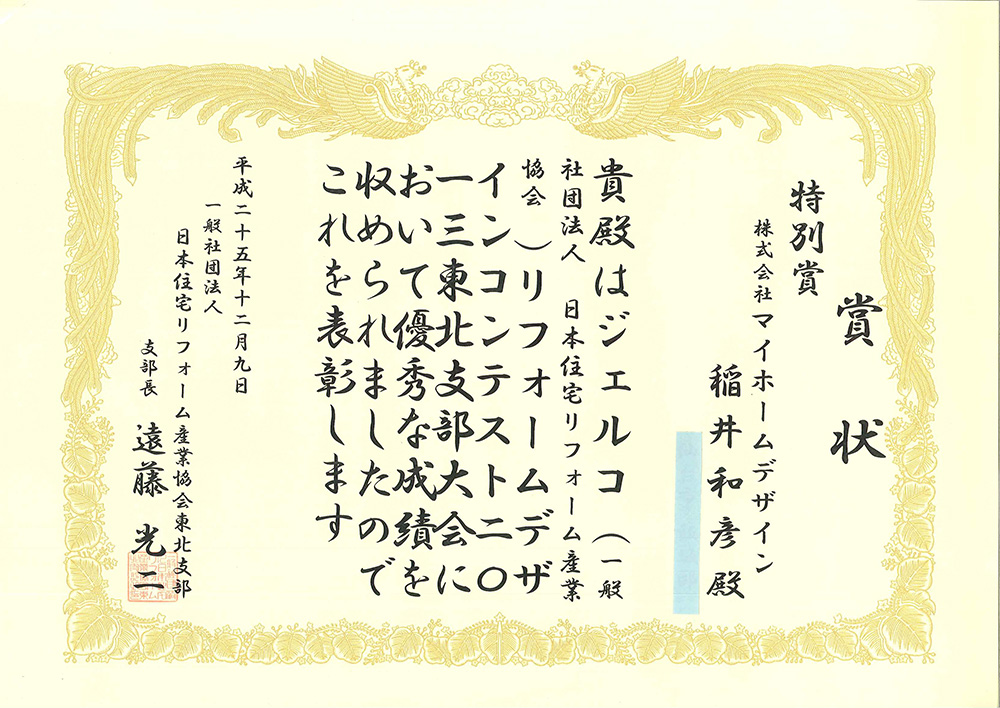 賞状
特別賞
株式会社マイホームデザイン
稲井和彦殿
貴殿はジェルコ（一般
社団法人 日本住宅リフォーム産業
協会）リフォームデザ
インコンテスト二〇
一三東北支部大会に
おいて優秀な成績を
収められましたので
これを表彰します
平成二十五年十二月九日
一般社団法人
日本住宅リフォーム産業協会東北支部
支部長 遠藤光二